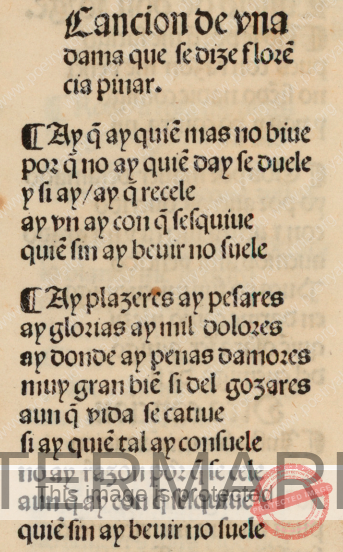 Cancion de vna
dama que se dize florẽ
cia pinar.
¶ Ay q̃ ay quiẽ mas no biue
por q̃ no ay quiẽ day se duele
y si ay/ay q̃ recele
ay vn ay con q̃ sesquiue
quiẽ sin ay beuir no suele
¶ Ay plazeres ay pesares
ay glorias ay mil dolores
ay donde ay penas damores
muy gran biẽ si del gozares
aun q̃ vida se catiue
si ay quiẽ tal ay consuele
no ay razon
aun q̃ ay con q̃
quiẽ sin ay beuir no suele
This image is protected